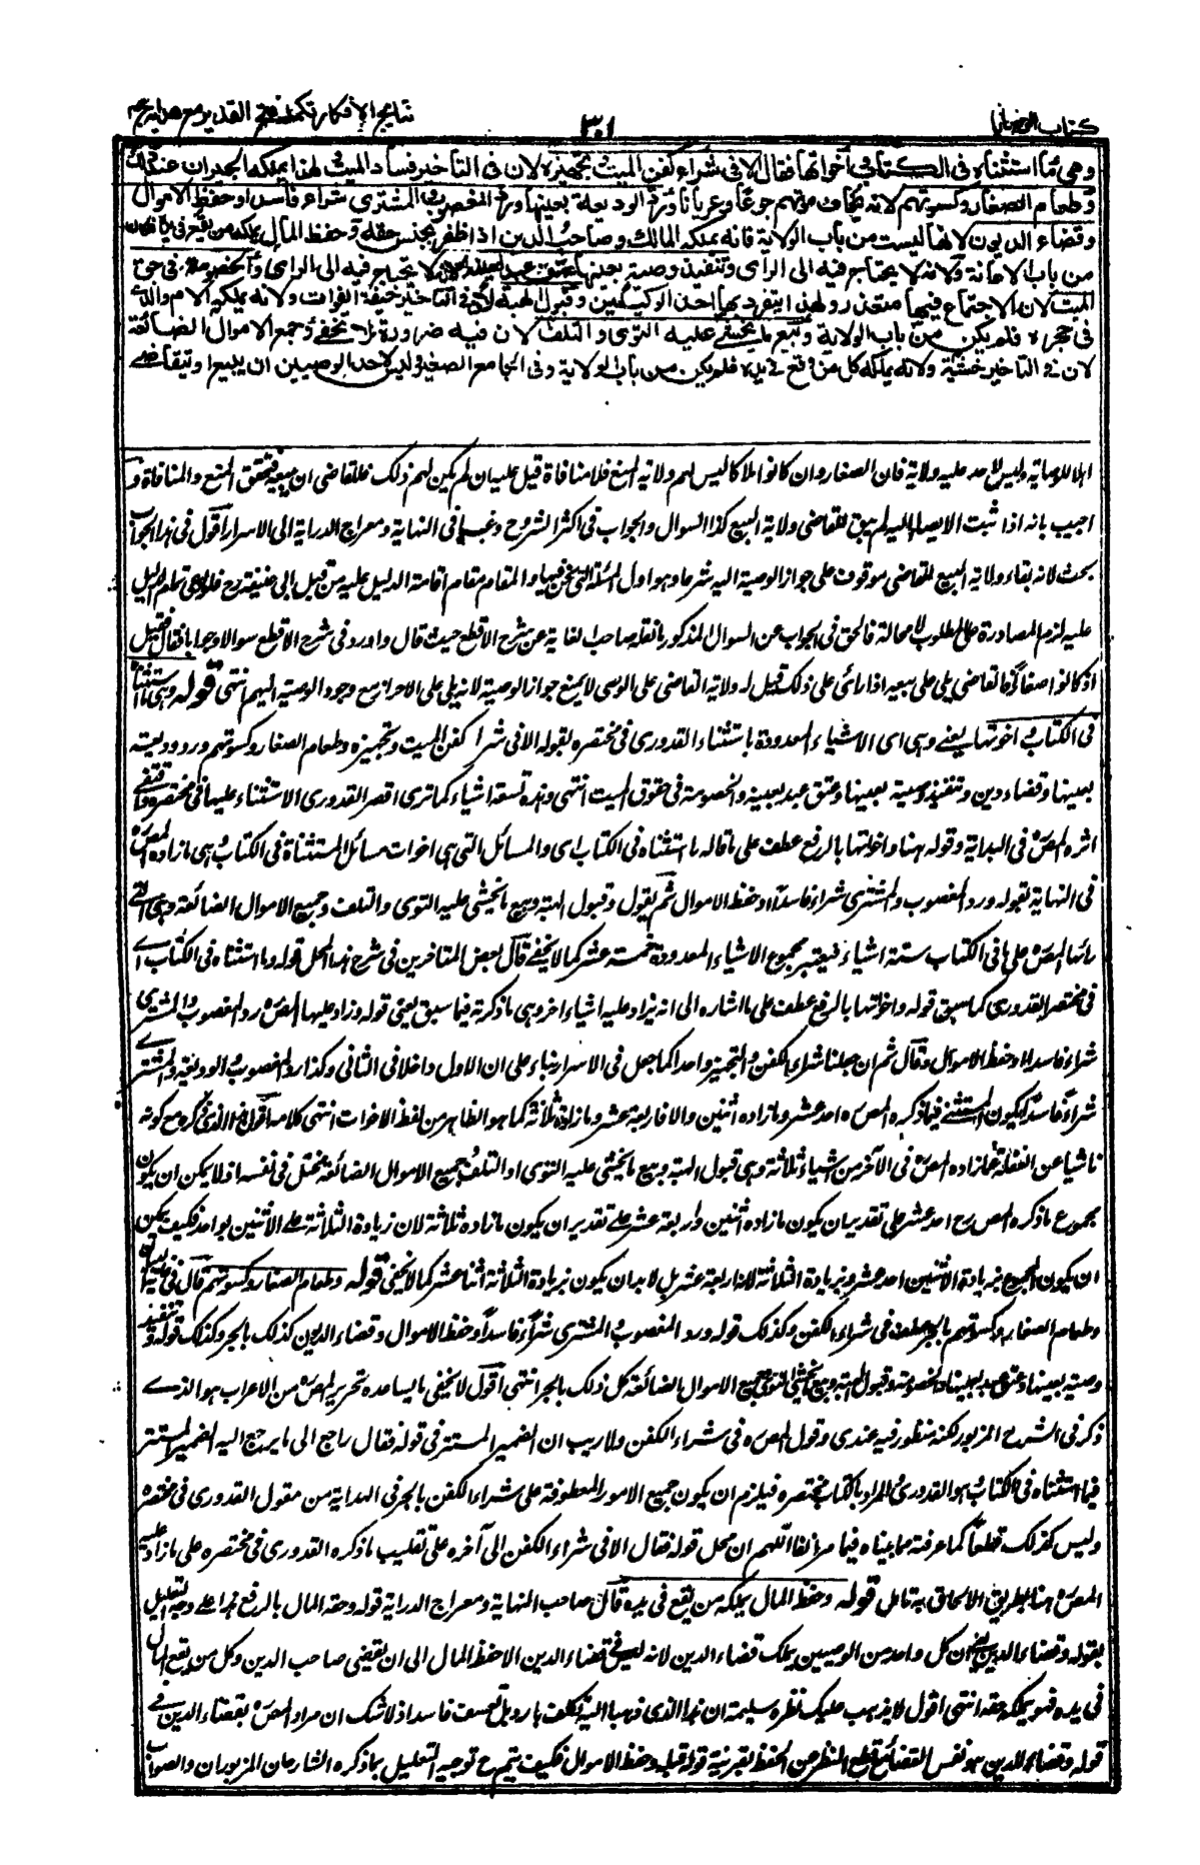 كتاب الوصايا
٣٠١
نتايج الافكار تكملة فتح القدير مع هدايه ج
وهى ما استثناه فى الكتاب واخواتها فقال الا فى شراء كفن الميت وتجهيزه لان فى التاخير فساد الميت ولهذا يملكه الجيران عند ذلك
وطعام الصغار وكسوتهم لانه يخاف موتهم جوعا وعريانا ورد الوديعة بعينها ورد المغصوب والمشترى شراء فاسدا وحفظ الاموال
وقضاء الديون لانها ليست من باب الولاية فانه يملكه المالك وصاحب الدين اذا ظفر بجنس حقه وحفظ المال يملكه من يقع فى يده فكان
من باب الاعانة ولانه لا يحتاج فيه الى الراى وتنفيذ وصية بعينها وعتق عبد بعينه لانه لا يحتاج فيه الى الراى والخصومة فى حق
الميت لان الاجتماع فيها متعذر ولهذا ينفرد بها احد الوكيلين وقبول الهبة لان فى التاخير خيفة الفوات ولانه يملكه الام والذى
فى حجره فلم يكن من باب الولاية وبيع ما يخشى عليه التوى والتلف لان فيه ضرورة لا تخفى وجمع الاموال الضائعة
لان فى التاخير خشية ولانه يملكه كل من وقع فى يده فلم يكن من باب الولاية وفى الجامع الصغير وليس لاحد الوصيين ان يبيع او يتقاضى
اهلا للوصاية وليس لاحد عليه ولاية فان الصغار وان كانوا ملاكا ليس لهم ولاية المنع فلا منافاة قيل عليه ان لم يكن لهم ذلك فللقاضى ان يبيعه فيتحقق المنع والمنافاة و
اجيب بانه اذا ثبت الايصاء اليه لم يبق للقاضى ولاية البيع كذا السوال والجواب فى اكثر الشروح وعزيا فى النهاية ومعراج الدراية الى الاسرار اقول فى هذا الجواب
بحث لانه بقاء ولاية البيع للقاضى موقوف على جواز الوصية اليه شرعا وهو اول المسئلة التى نحن فيها والمقام مقام اقامة الدليل عليه من قبل ابى حنيفة رح فلو بنى تمام الدليل
عليه لزم المصادرة على المطلوب لا محالة فالحق فى الجواب عن السوال المذكور ما نقله صاحب الغاية عن شرح الاقطع حيث قال واورد فى شرح الاقطع سوالا وجوابا فقال فان قيل
اذ كانوا صغارا فالقاضى يلى على بيعه اذا راى على ذلك قيل له ولاية القاضى على الوصى لا يمنع جواز الوصية لانه يلى على الاحرار مع وجود الوصية اليهم انتهى قوله وهى ما استثناه
فى الكتاب واخوتها يعنى وهى اى الاشياء المعدودة باستثناء القدورى فى مختصره لقوله الا فى شراء كفن الميت وتجهيزه وطعام الصغار وكسوتهم ورد وديعة
بعينها وقضاء دين وتنفيذ وصية بعينها وعتق عبد بعينه والخصومة فى حقوق الميت انتهى وهذه تسعة اشياء كما ترى اقصر القدورى الاستثناء عليها فى مختصره واقتفى
اثره المصنف فى البداية وقوله هنا واخواتها بالرفع عطف على ما قاله ما استثناه فى الكتاب اى والمسائل التى هى اخوات مسائل المستثناة فى الكتاب هى ما زاده المص
فى النهاية بقوله ورد المغصوب والمشترى شراء فاسدا وحفظ الاموال ثم يقول وقبول الهبة وبيع ما يخشى عليه التوى والتلف وجميع الاموال الضائعة وهى التى
زادها المص على ما فى الكتاب ستة اشياء فيعتبر مجموع الاشياء المعدودة خمسة عشر كما لا يخفى قال بعض المتاخرين فى شرح هذا المحل قوله وما استثناه فى الكتاب اى
فى مختصر القدورى كما سبق قوله واخواتها بالرفع عطف على ما اشاره الى انه يزاد عليه اشياء اخر وهى ما ذكرته فيما سبق يعنى قوله وزاد عليها المص رد المغصوب والمشترى
شراء فاسدا وحفظ الاموال وقال ثم ان جعلنا شراء الكفن والتجهيز واحدا كما جعل فى الاسرار بناء على ان الاول داخل فى الثانى وكذا رد المغصوب والوديعة والمشترى
شراء فاسدا ليكون المستثنى فيما ذكره المص احد عشر وما زاده اثنين والا فاربعة عشر وما زاده ثلاثة كما هو الظاهر من لفظ الاخوات انتهى كلامه اقول هذا الذى ذكره مع كونه
ناشيا عن الغفلة عما زاده المص فى الآخر من اشياء ثلاثة وهى قبول الهبة وبيع ما يخشى عليه التوى او التلف وجميع الاموال الضائعة مختل فى نفسه اذ لا يمكن ان يكون
مجموع ما ذكره المص رح احد عشر على تقدير ان يكون ما زاده اثنين واربعة عشر على تقدير ان يكون ما زاده ثلاثة لان زيادة الثلاثة على الاثنين بواحد فكيف يمكن
ان يكون المجموع بزيادة الاثنين احد عشر وبزيادة الثلاثة اربعة عشر بل لا بد ان يكون بزيادة الثلاثة اثنا عشر كما لا يخفى قوله وطعام الصغار وكسوتهم قال فى غاية البيان
وطعام الصغار وكسوتهم بالجر عطف فى شراء الكفن وكذلك قوله ورد المغصوب والمشترى شراء فاسدا وحفظ الاموال وقضاء الديون كذلك بالجر وكذلك قوله وتنفيذ
وصية بعينها وعتق عبد بعينه والخصومة وقبول الهبة وبيع ما يخشى التوى وجميع الاموال الضائعة كل ذلك بالجر انتهى اقول لا يخفى ما يساعده تحرير المص من الاعراب هو الذى
ذكر فى الشرح المزبور لكنه منظور فيه عندى وقول المص فى شراء الكفن ولا ريب ان الضمير المستتر فى قوله فقال راجع الى ما يرجع اليه الضمير المستتر
فيما استثناه فى الكتاب هو القدورى والمراد بالكتاب مختصره فيلزم ان يكون جميع الامور المعطوفة على شراء الكفن بالجر فى البداية من مقول القدورى فى مختصره
وليس كذلك قطعا كما عرفته مما بيناه فيما مر انفا اللهم ان محل قوله فقال الا فى شراء الكفن الى آخره على تغليب ما ذكره القدورى فى مختصره على ما زاد عليه
المص هنا بطريق الالحاق به تامل قوله وحفظ المال يملكه من يقع فى يده قال صاحب النهاية ومعراج الدراية قوله وحفظ المال بالرفع هذا على وجه التعليل
بقوله وقضاء الدين يعنى ان كل واحد من الوصيين يملك قضاء الدين لانه ليس فى قضاء الدين الا حفظ المال الى ان يقضى صاحب الدين وكل من وقع المال
فى يده فهو يملك حفظه انتهى اقول لا يذهب عليك نظره سليمة ان هذا الذى ذهبا اليه تكلف بارد بل تعسف فاسد اذ لا شك ان مراد المص بقضاء الدين فى
قوله وقضاء الدين هو نفس القضاء مع قطع النظر عن الحفظ بقرينة قوله قبله وحفظ الاموال فكيف يتم ح توجيه التعليل بما ذكره الشارحان المزبوران والصواب